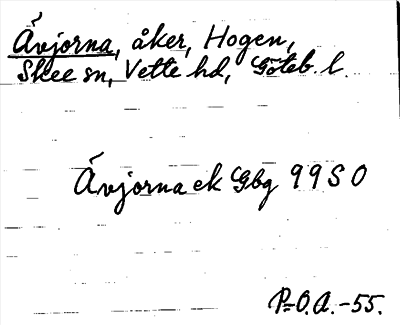 Ävjorna, åker, Hogen,
Skee sn, Vette hd, Göteb. l.
Ävjorna ek Gbg 99 S O
P-O.A. -55.